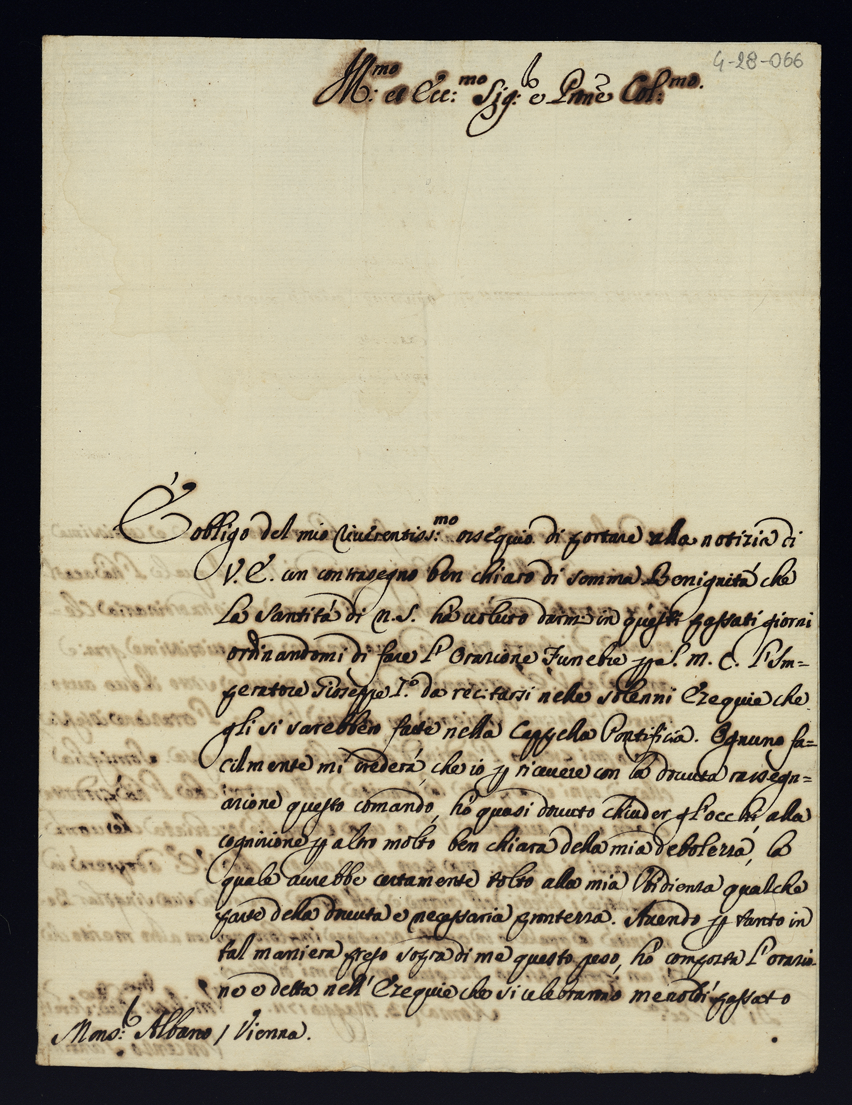 4-28-066
Ill:mo et Ecc:mo Sig:r e Prone Col:mo.
È obligo del mio riverentiss:mo ossequio di portare alla notizia di
V. E. un contrasegno ben chiaro di somma Benignità che
La Santità di N. S. ha voluto darmi in questi passati giorni
ordinandomi di fare l'Orazione Funebre p S. M. C. l'Im=
peratore Gioseppe I.o da recitarsi nelle solenni Esequie che
gli si sarebbero fatte nella Cappella Pontificia. Ognuno fa=
cilmente mi crederà, che io p ricevere con la dovuta rassegn=
azione questo comando, ho quasi dovuto chiuder gl'occhi alla
cognizione p altro molto ben chiara della mia debolezza, la
quale avrebbe certamente tolto alla mia Obidienza qualche
parte della dovuta e necessaria prontezza. Avendo p tanto in
tal maniera preso sopra di me questo peso, ho composta l'orazio=
ne e detta nell'Esequie che si celebrarono passato
Mons:r Albano / Vienna.